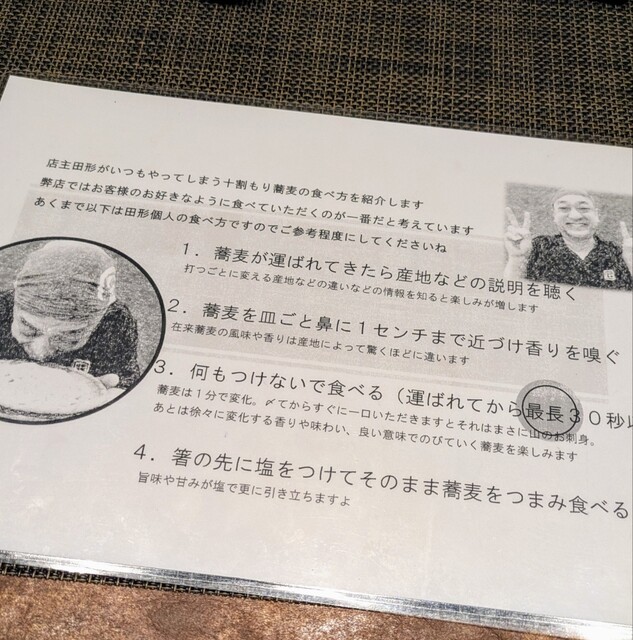 店主田形がいつもやってしまう十割もり蕎麦の食べ方を紹介します
弊店ではお客様のお好きなように食べていただくのが一番だと考えています
あくまで以下は田形個人の食べ方ですのでご参考程度にしてくださいね
1．蕎麦が運ばれてきたら産地などの説明を聴く
打つごとに変える産地などの違いなどの情報を知ると楽しみが増します
2．蕎麦を皿ごと鼻に1センチまで近づけ香りを嗅ぐ
在来蕎麦の風味や香りは産地によって驚くほどに違います
3．何もつけないで食べる（運ばれてから最長30秒以
蕎麦は1分で変化。〆てからすぐに一口いただきますとそれはまさに山のお刺身。
あとは徐々に変化する香りや味わい、良い意味でのびていく蕎麦を楽しみます
4．箸の先に塩をつけてそのまま蕎麦をつまみ食べる
旨味や甘みが塩で更に引き立ちますよ